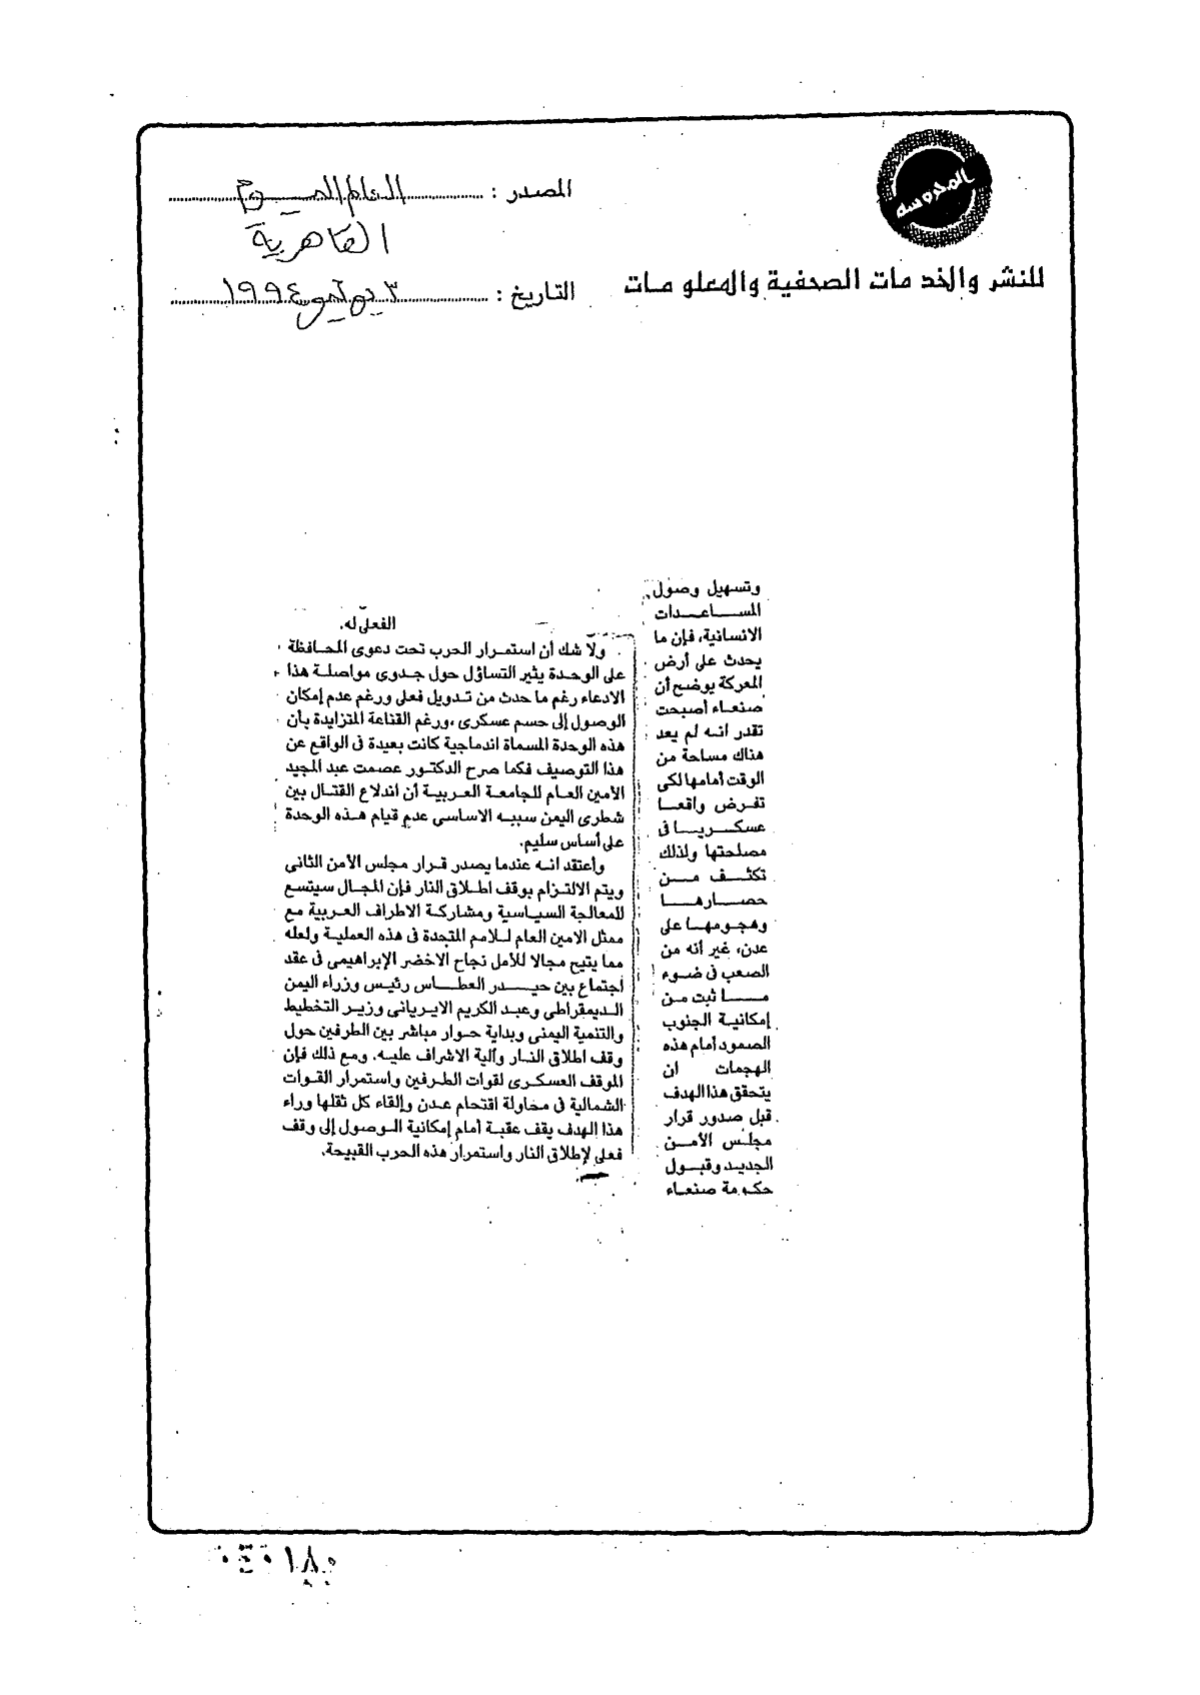 المحروسه
للنشر والخدمات الصحفية والمعلومات
المصدر : العالم اليوم
القاهرية
التاريخ : ٣ يوليو ١٩٩٤
وتسهيل وصول
المساعدات
الانسانية، فإن ما
يحدث على أرض
المعركة يوضح أن
صنعاء أصبحت
تقدر انه لم يعد
هناك مساحة من
الوقت أمامها لكى
تفرض واقعا
عسكريا فى
مصلحتها ولذلك
تكثف من
حصارها
وهجومها على
عدن، غير أنه من
الصعب فى ضوء
ما ثبت من
إمكانية الجنوب
الصمود أمام هذه
الهجمات ان
يتحقق هذا الهدف
قبل صدور قرار
مجلس الأمن
الجديد وقبول
حكومة صنعاء
الفعلى له.
ولا شك أن استمرار الحرب تحت دعوى المحافظة
على الوحدة يثير التساؤل حول جدوى مواصلة هذا
الادعاء رغم ما حدث من تدويل فعلى ورغم عدم إمكان
الوصول إلى حسم عسكرى، ورغم القناعة المتزايدة بأن
هذه الوحدة المسماة اندماجية كانت بعيدة فى الواقع عن
هذا التوصيف فكما صرح الدكتور عصمت عبد المجيد
الأمين العام للجامعة العربية أن اندلاع القتال بين
شطرى اليمن سببه الاساسى عدم قيام هذه الوحدة
على أساس سليم.
وأعتقد انه عندما يصدر قرار مجلس الأمن الثانى
ويتم الالتزام بوقف اطلاق النار فإن المجال سيتسع
للمعالجة السياسية ومشاركة الاطراف العربية مع
ممثل الامين العام للامم المتحدة فى هذه العملية ولعله
مما يتيح مجالا للأمل نجاح الاخضر الإبراهيمى فى عقد
اجتماع بين حيدر العطاس رئيس وزراء اليمن
الديمقراطى وعبد الكريم الايريانى وزير التخطيط
والتنمية اليمنى وبداية حوار مباشر بين الطرفين حول
وقف اطلاق النار وآلية الاشراف عليه. ومع ذلك فإن
الموقف العسكرى لقوات الطرفين واستمرار القوات
الشمالية فى محاولة اقتحام عدن وإلقاء كل ثقلها وراء
هذا الهدف يقف عقبة أمام إمكانية الوصول إلى وقف
فعلى لإطلاق النار واستمرار هذه الحرب القبيحة.